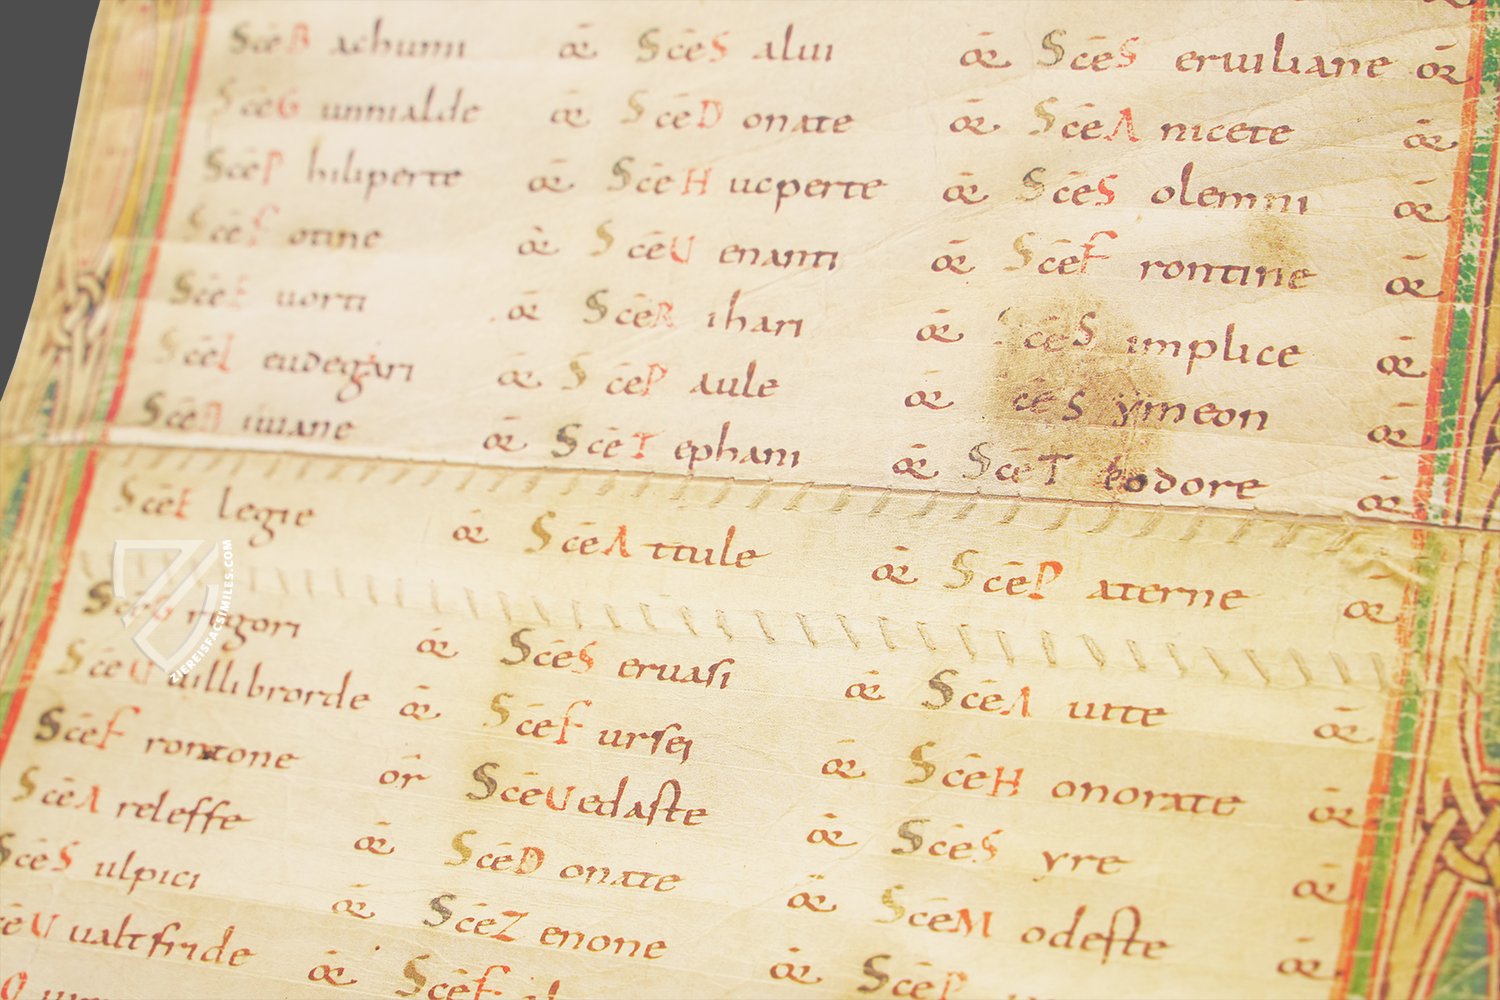 Sc̄e B achumi or̄ Sc̄e S alui or̄ Sc̄e S eruiliane or̄
Sc̄e G unnialde or̄ Sc̄e D onate or̄ Sc̄e A nicete or̄
Sc̄e P hiliperte or̄ Sc̄e H ucperte or̄ Sc̄e S olemni or̄
Sc̄e F otine or̄ Sc̄e U enanti or̄ Sc̄e F rontine or̄
Sc̄e E uorti or̄ Sc̄e R ihari or̄ Sc̄e S implice or̄
Sc̄e L eudegari or̄ Sc̄e P aule or̄ Sc̄e S ymeon or̄
Sc̄e iuuane or̄ Sc̄e T ephani or̄ Sc̄e T heodore or̄
Sc̄e E legie or̄ Sc̄e A ttule or̄ Sc̄e P aterne or̄
Sc̄e G rigori or̄ Sc̄e S eruasi or̄ Sc̄e A utte or̄
Sc̄e U uillibrorde or̄ Sc̄e F ursei or̄ Sc̄e H onorate or̄
Sc̄e F rontone or̄ Sc̄e U edaste or̄ Sc̄e S yre or̄
Sc̄e A releffe or̄ Sc̄e D onate or̄ Sc̄e M odeste or̄
Sc̄e S ulpici or̄ Sc̄e Z enone or̄ Sc̄e P
c̄e U ualtfride or̄ Sc̄e F
ZIEREISFACSIMILES.COM